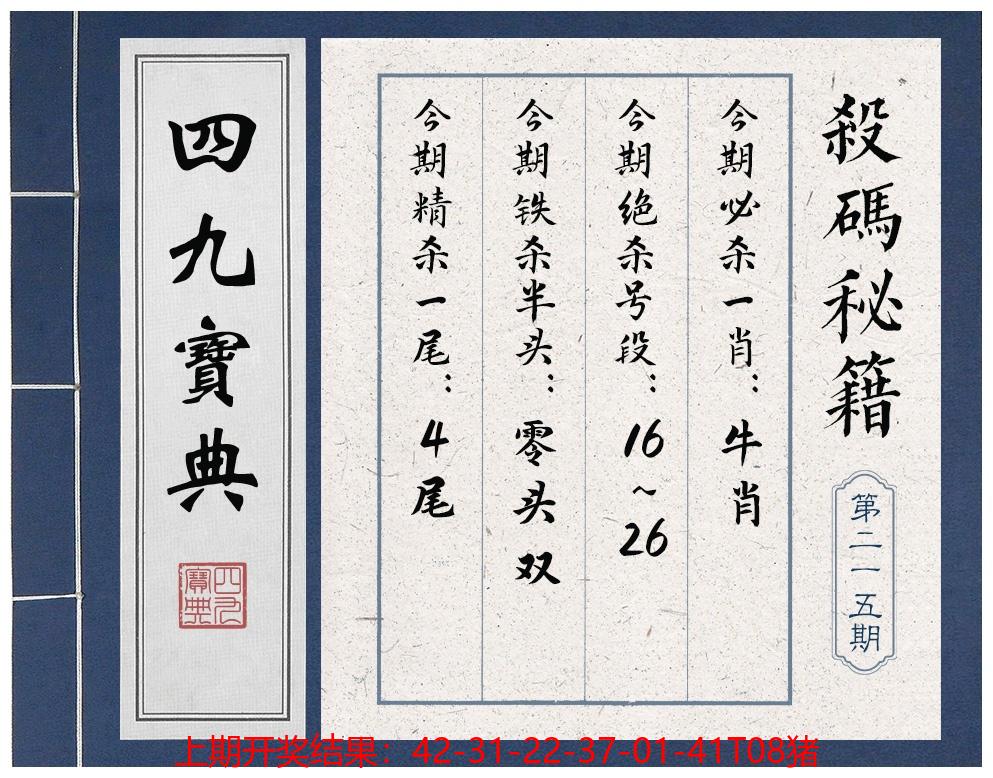 殺碼秘籍
第二一五期
今期必杀一肖：牛肖
今期绝杀号段：16~26
今期铁杀半头：零头双
今期精杀一尾：4尾
四九寶典
四九寶典
上期开奖结果：42-31-22-37-01-41T08猪